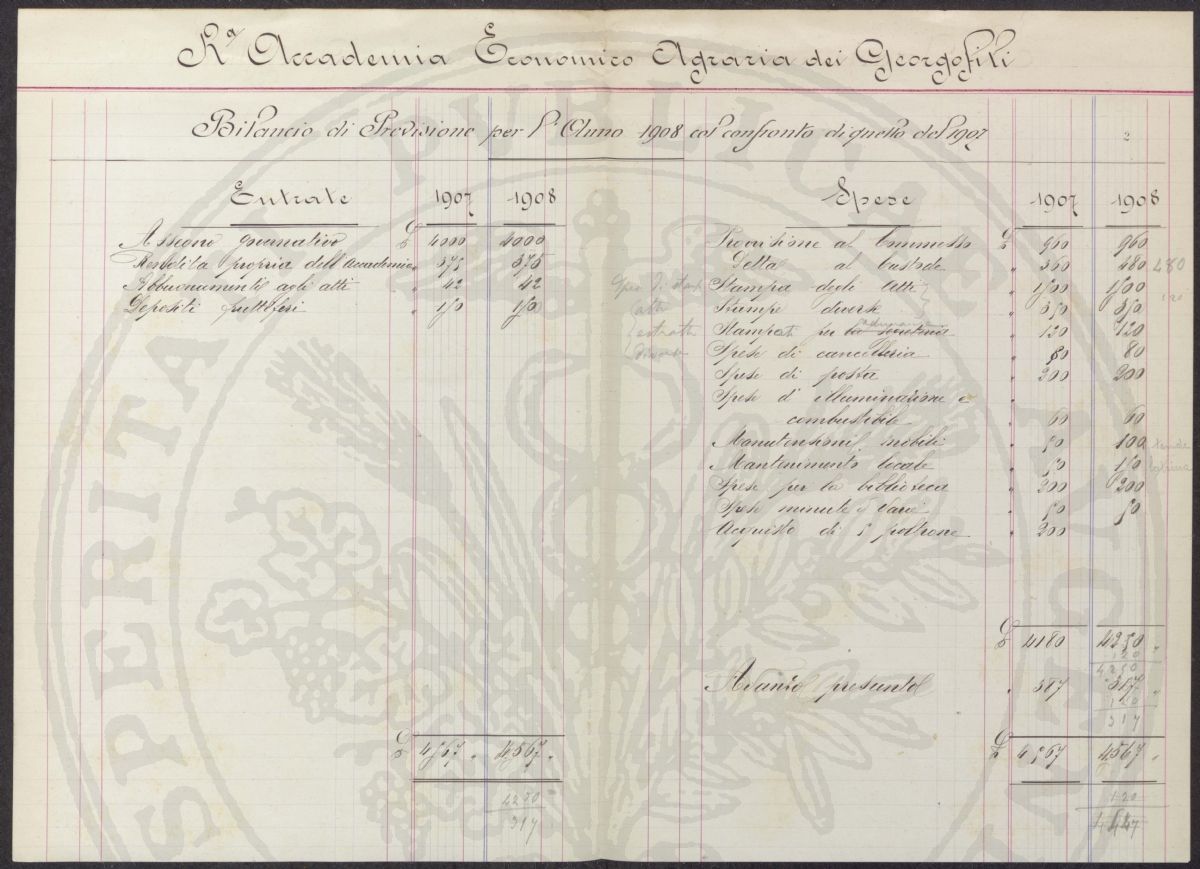 Rª Accademia Economico Agraria dei Georgofili
Bilancio di Previsione per l'Anno 1908 col confronto di quello del 1907
2
Entrate 1907 1908
Assegno governativo £ 4000 4000
Rendita propria dell'Accademia " 375 375
Abbuonamenti agli atti " 42 42
Depositi fruttiferi " 150 150
£ 4567 " 4567 "
4250
317
Spese 1907 1908
Provvisione al Commesso £ 960 960
Detta al Custode " 360 480 480
Stampa degli Atti " 1500 1500 120
Stampe diverse " 350 350
Stampati per la " 120 120
Spese di cancelleria " 80 80
Spese di posta " 200 200
Spese d'illuminazione e "
combustibile " 60 60
Manutenzioni mobili " 50 100 tende
Mantenimento locale " 50 150
Spese per la biblioteca " 200 200
Spese minute e varie " 50 50
Acquisto di 5 poltrone " 200
£ 4180 4250 "
120
4250
Avanzo presunto " 387 317 "
120
317
£ 4567 4567 "
120
4447
SPERITA PVBLICA AVGEN